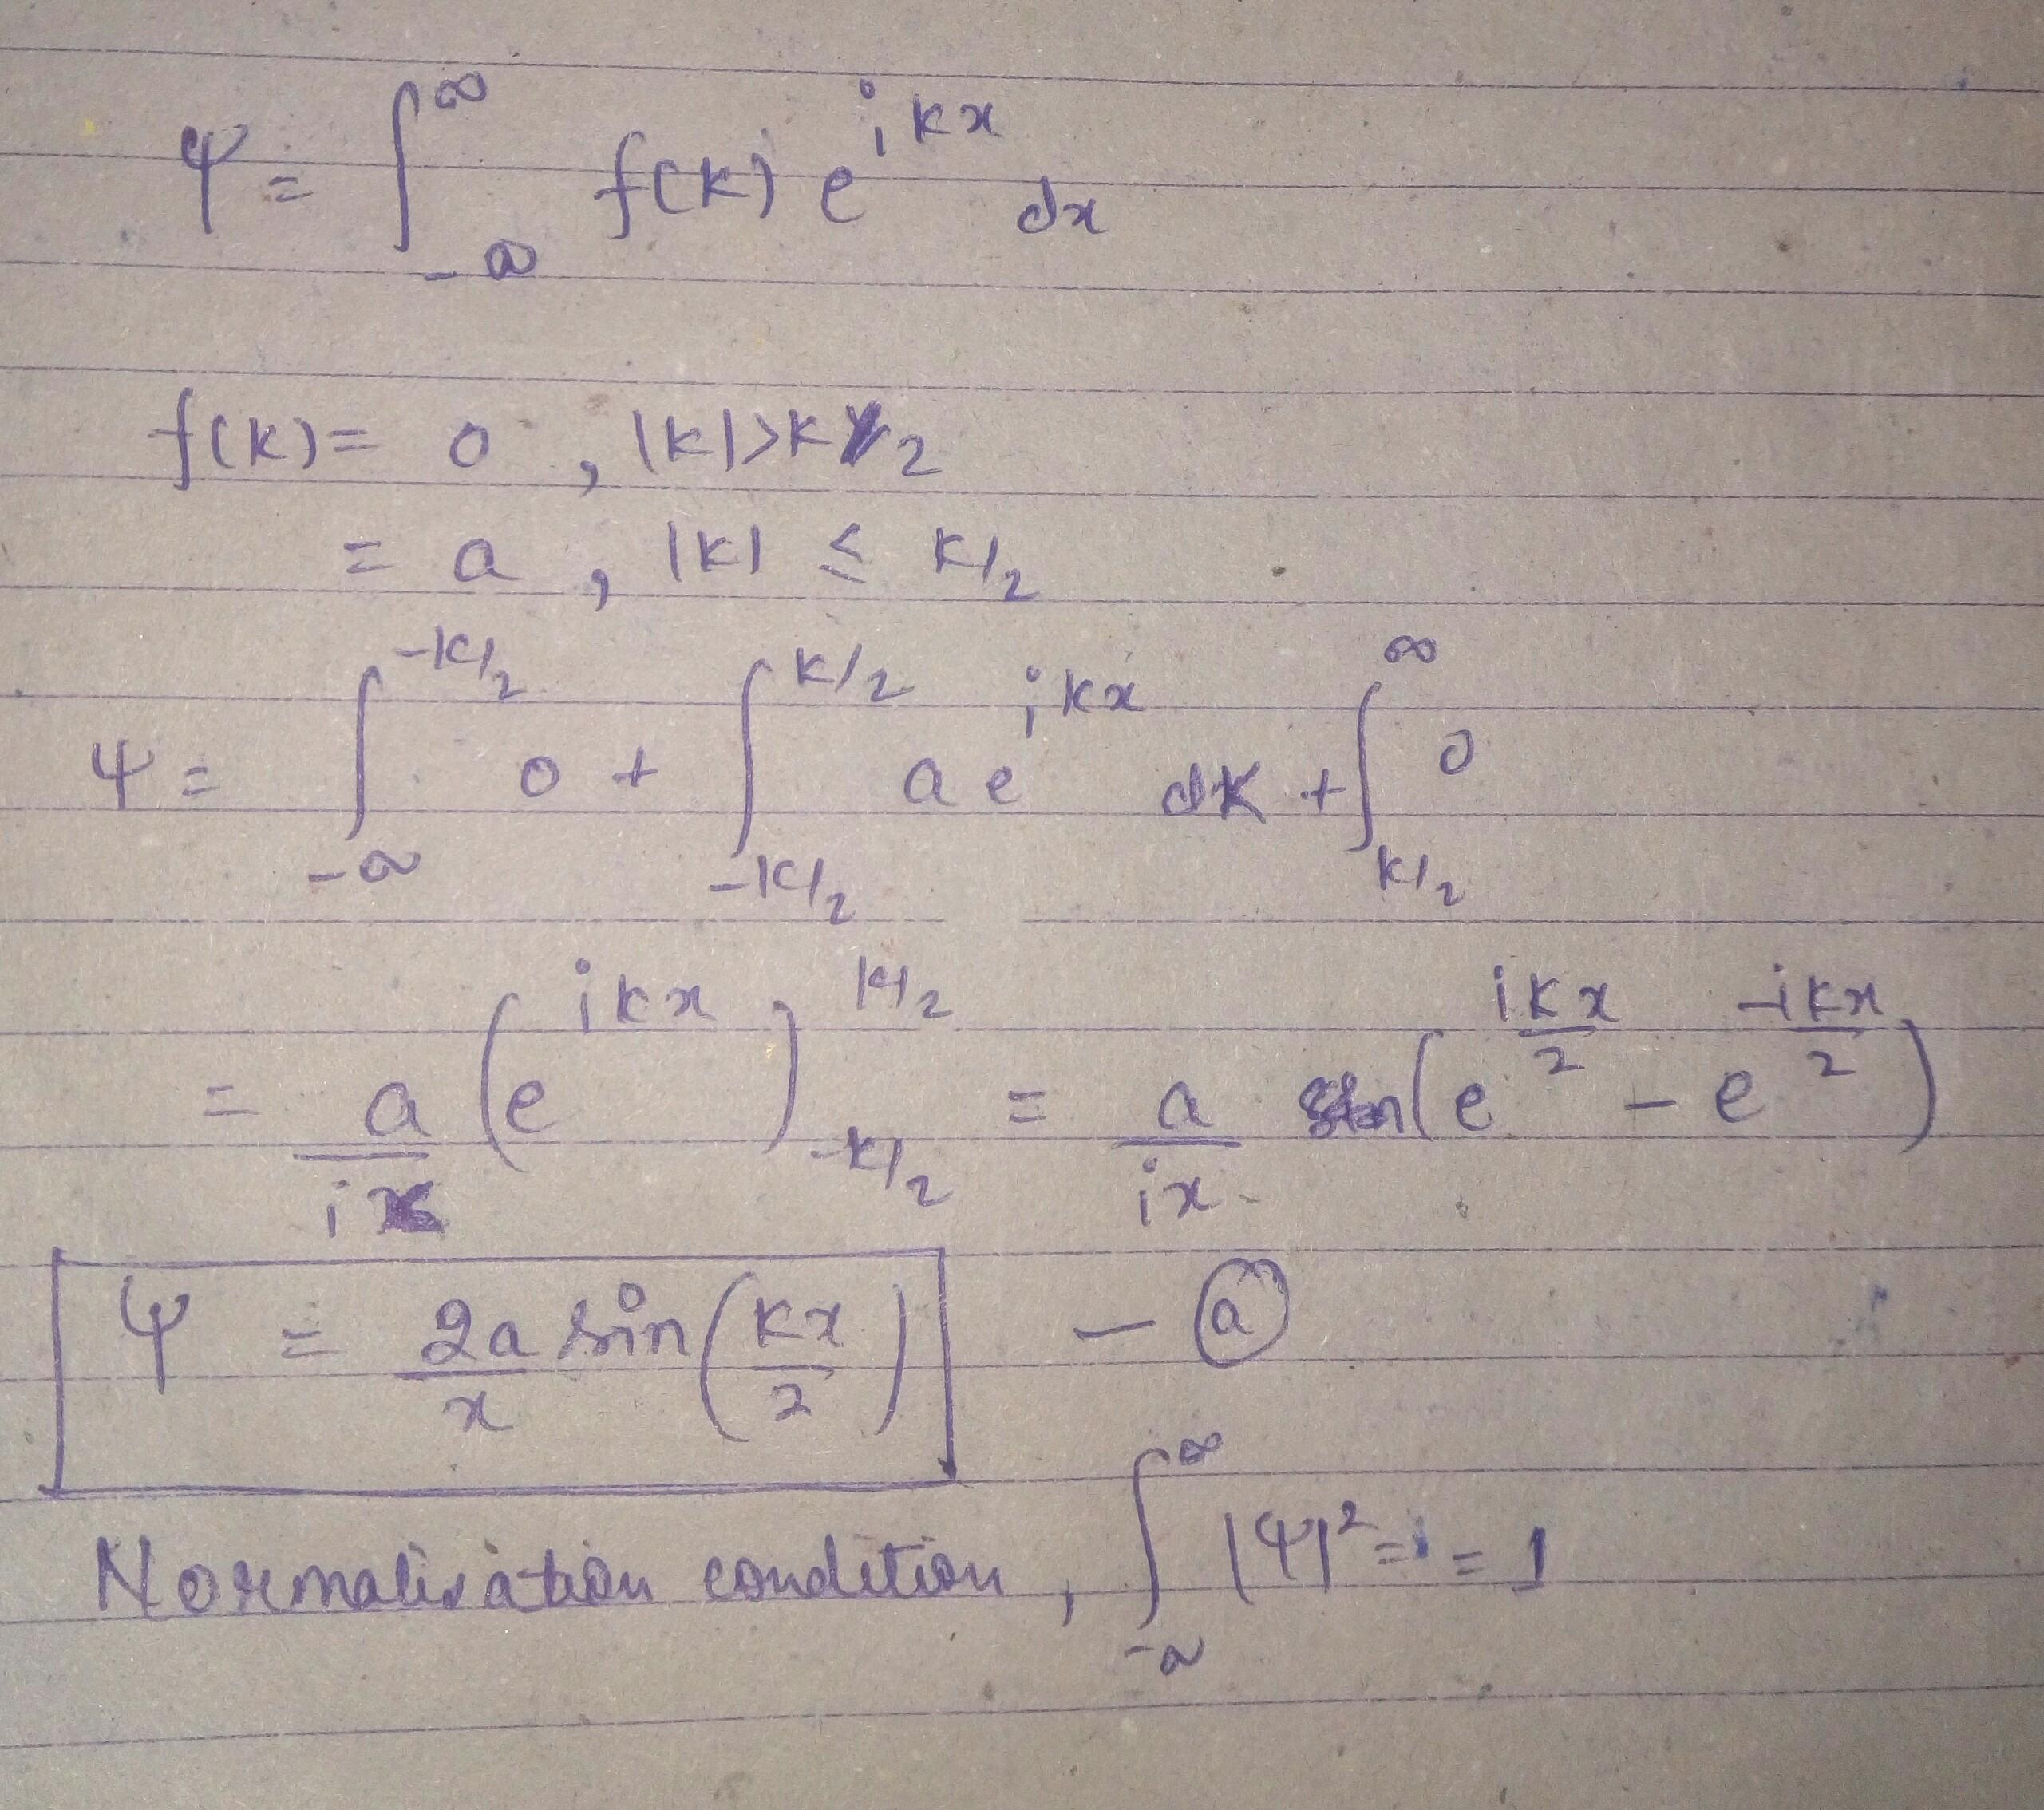 ψ = ∫_{-∞}^{∞} f(k) e^{ikx} dx
f(k) = 0 , |k|>k/2
= a , |k| ≤ k/2
ψ = ∫_{-∞}^{-k/2} 0 + ∫_{-k/2}^{k/2} a e^{ikx} dk + ∫_{k/2}^{∞} 0
= a/ix (e^{ikx})_{-k/2}^{k/2} = a/ix (e^{ikx/2} - e^{-ikx/2})
ψ = 2a/x sin(kx/2) - (a)
Normalisation condition, ∫_{-∞}^{∞} |ψ|² = = 1